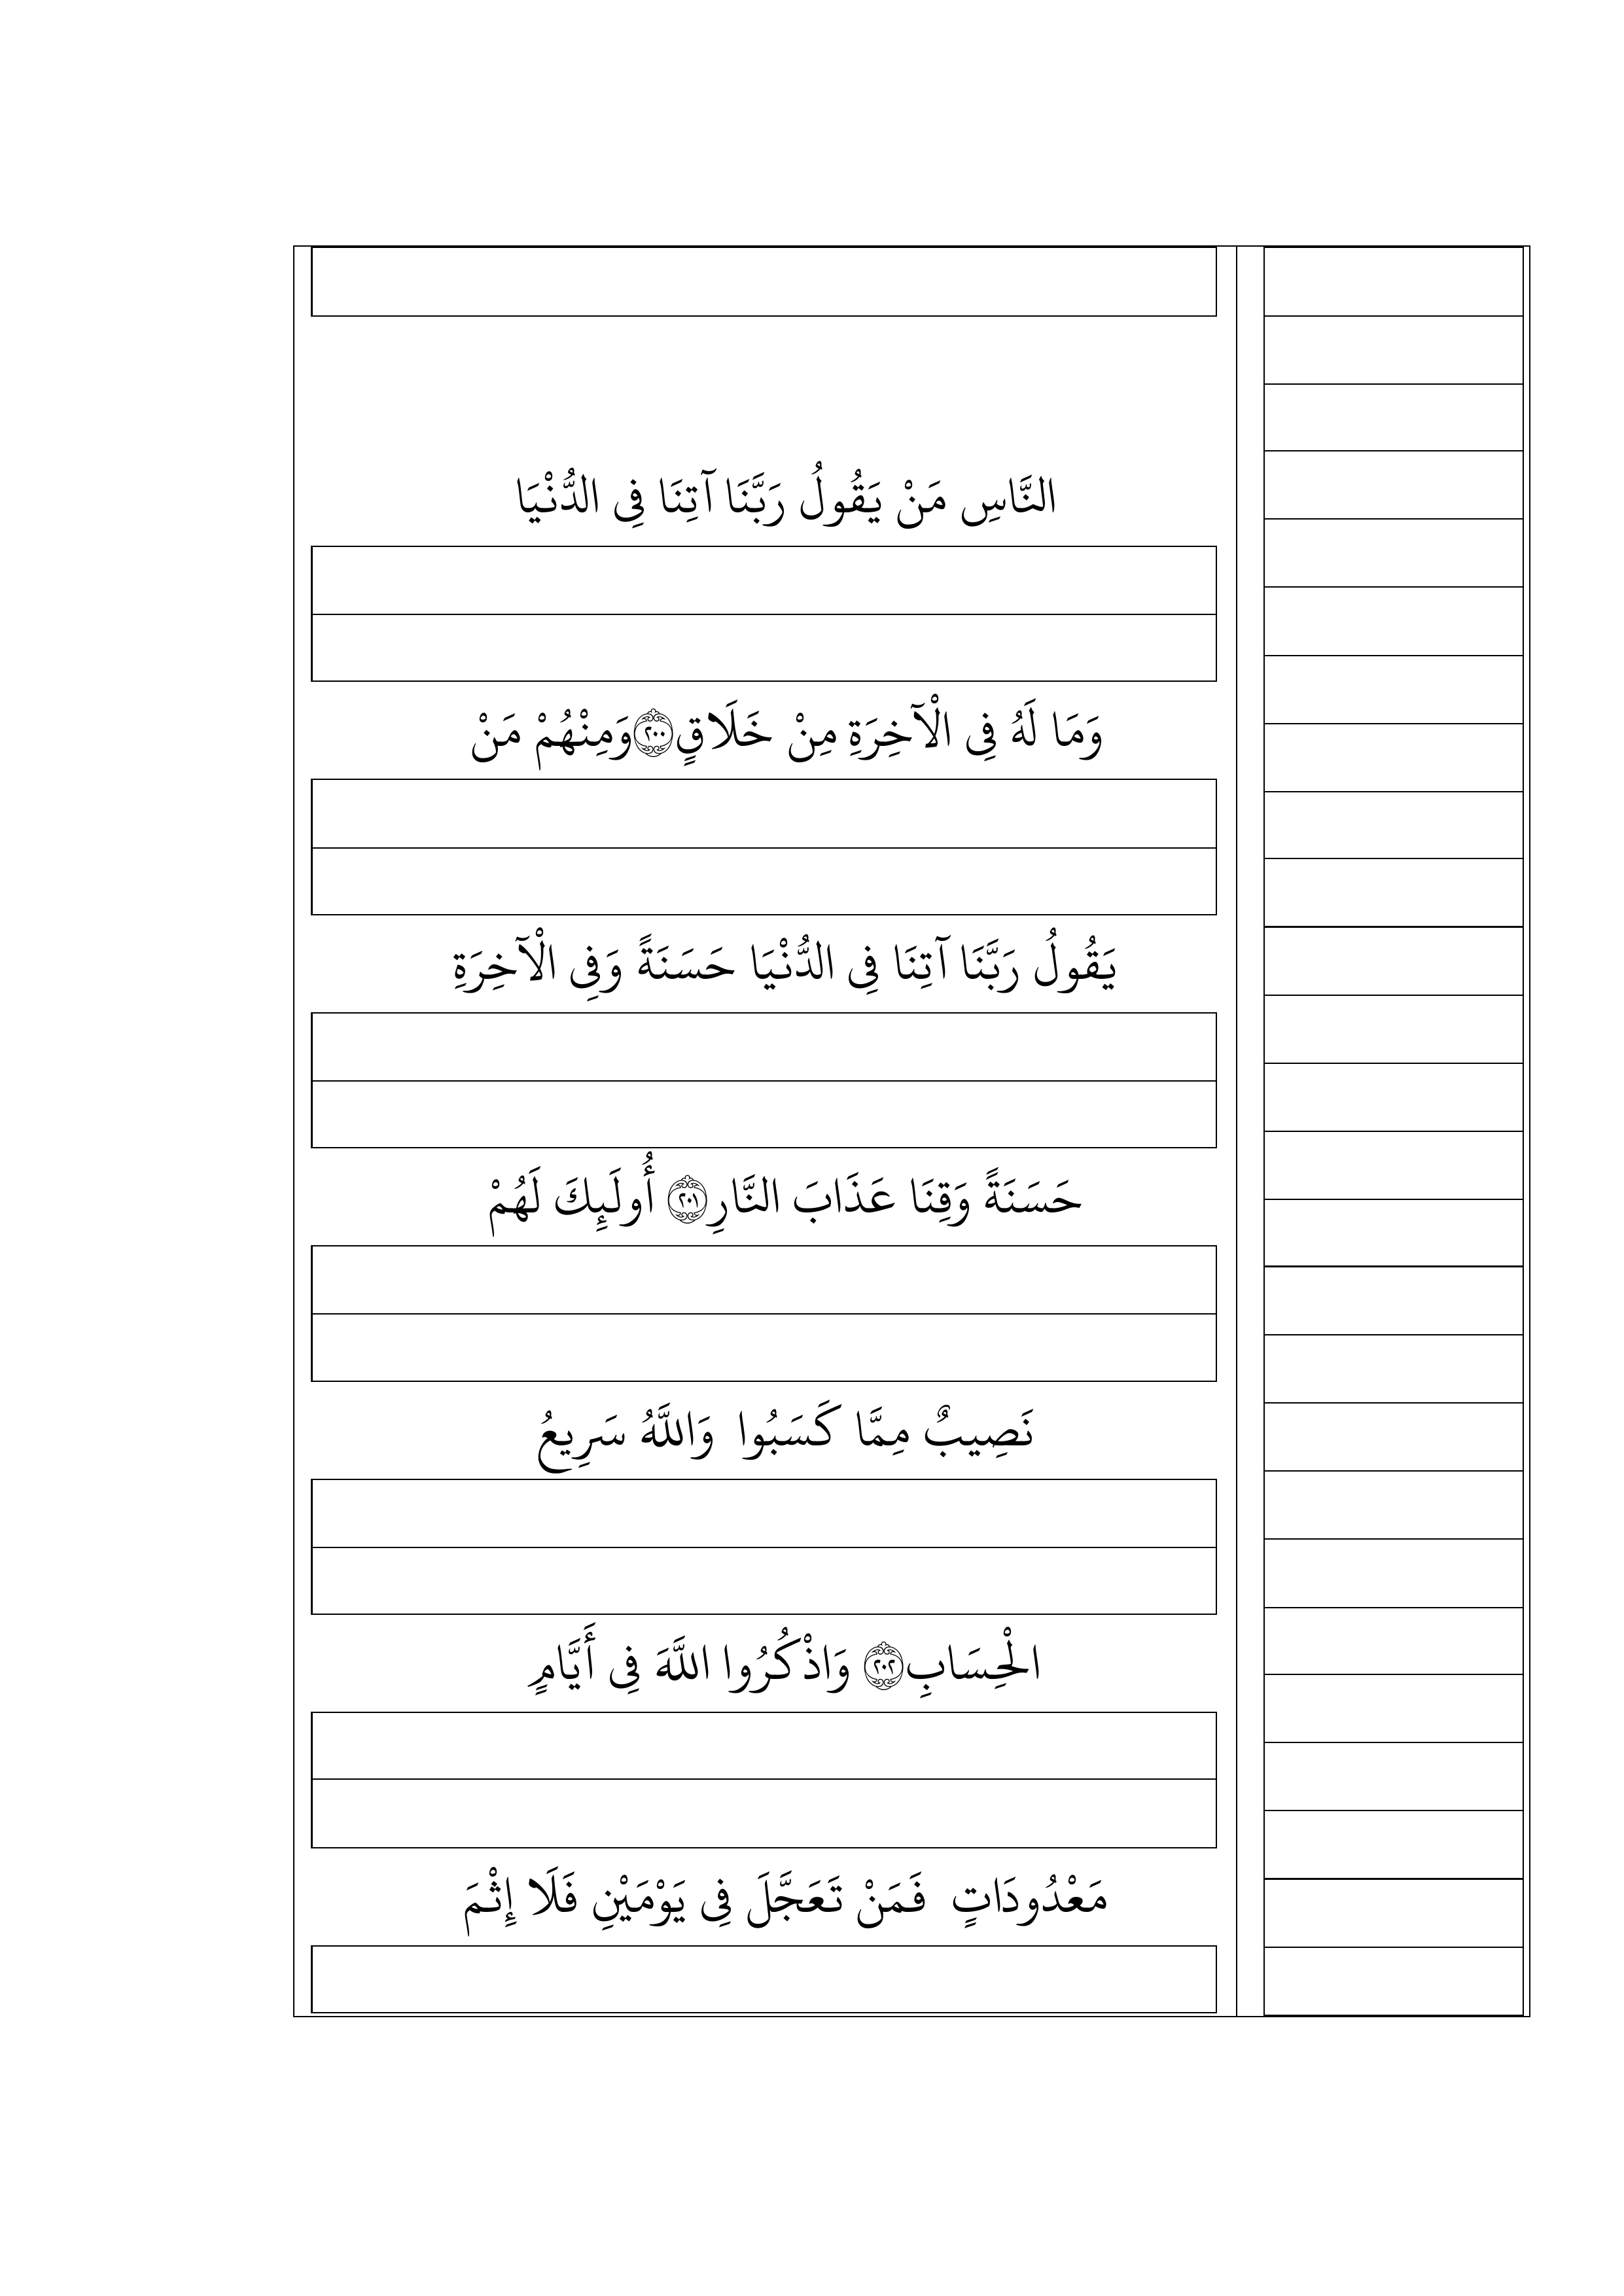 النَّاسِ مَنْ يَقُولُ رَبَّنَا آتِنَا فِى الدُّنْيَا
وَمَا لَهُ فِى الْآخِرَةِ مِنْ خَلَاقٍ۝٢٠٠وَمِنْهُمْ مَنْ
يَقُولُ رَبَّنَا آتِنَا فِى الدُّنْيَا حَسَنَةً وَفِى الْآخِرَةِ
حَسَنَةً وَقِنَا عَذَابَ النَّارِ۝٢٠١ أُولَئِكَ لَهُمْ
نَصِيبٌ مِمَّا كَسَبُوا وَاللَّهُ سَرِيعُ
الْحِسَابِ۝٢٠٢ وَاذْكُرُوا اللَّهَ فِى أَيَّامٍ
مَعْدُودَاتٍ فَمَنْ تَعَجَّلَ فِى يَوْمَيْنِ فَلَا إِثْمَ